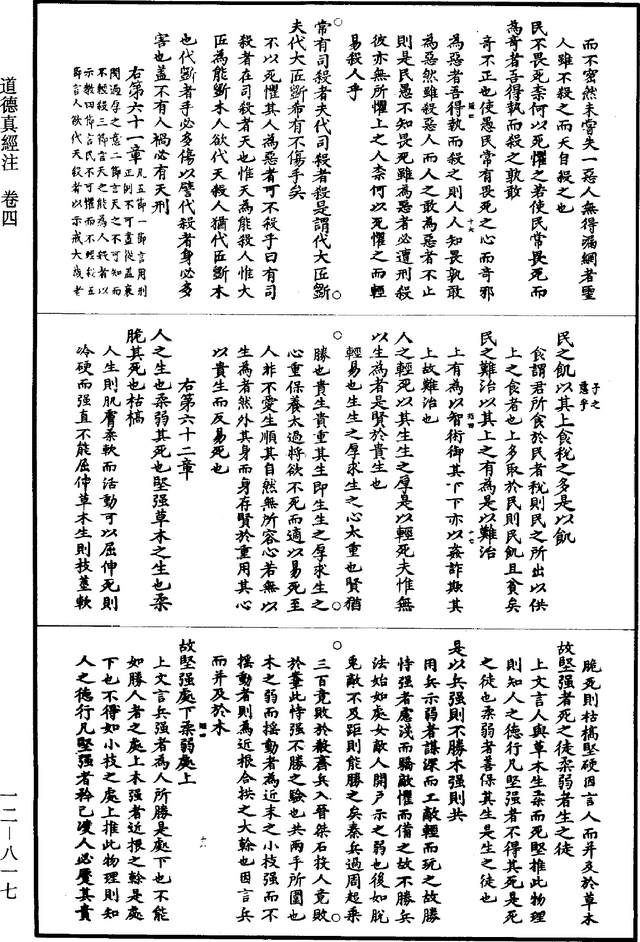 道德真經注 卷四
一二—八一七
而不寬然未嘗失一惡人無得漏網者聖
人雖不殺之而天自殺之也
民不畏死柰何以死懼之若使民常畏死而
為奇者吾得執而殺之孰敢
奇不正也使愚民常有畏死之心而奇邪
為惡者吾得執而殺之則人人知畏孰敢
為惡然雖殺惡人而人之敢為惡者不止
則是民愚不知畏死雖為惡者必遭刑殺
彼亦無所懼上之人柰何以死懼之而輕
易殺人乎
常有司殺者夫代司殺者殺是謂代大匠斲
夫代大匠斲希有不傷手矣
不以死懼其人為惡者可不殺乎曰有司
殺者在司殺者天也惟天為能殺人惟大
匠為能斲木人欲代天殺人猶代匠斲木
也代斲者手必多傷以譬代殺者身必多
害也蓋不有人禍必有天刑
右第六十一章
凡五節一節言用刑
正例不可盡從蓋衰
閔過厚之意二節言天之不可知而
不輕殺三節言天之能為人殺者以
示教四節言民不可懼而不理殺五
節言人欲代天殺者以示戒大哉老
子之
意乎
民之飢以其上食稅之多是以飢
食謂君所食於民者稅則民之所出以供
上之食者也上多取於民則民飢且貧矣
民之難治以其上之有為是以難治
上有為以智術御其下下亦以姦詐欺其
上故難治也
人之輕死以其生生之厚是以輕死夫惟無
以生為者是賢於貴生也
輕易也生生之厚求生之心太重也賢猶
勝也貴生貴重其生即生生之厚求生之
心重保養太過將欲不死而適以易死至
人非不愛生順其自然無所容心若無以
生為者然外其身而身存賢於重用其心
以貴生而反易死也
右第六十二章
人之生也柔弱其死也堅强草木之生也柔
脆其死也枯槁
人生則肌膚柔軟而活動可以屈伸死則
冷硬而强直不能屈伸草木生則枝莖軟
脆死則枯槁堅硬因言人而并及於草木
故堅强者死之徒柔弱者生之徒
上文言人與草木生柔而死堅推此物理
則知人之德行凡堅强者不得其死是死
之徒也柔弱者善保其生是生之徒也
是以兵强則不勝木强則共
用兵示弱者謀深而工敵輕而玩之故勝
恃强者慮淺而驕敵懼而備之故不勝兵
法始如處女敵人開戶示之弱也後如脫
兔敵不及距則能勝之矣秦兵過周超乘
三百竟敗於殽齊兵入晉桀石投人竟敗
於鞌此恃强不勝之驗也共兩手所圍也
木之弱而搖動者為近末之小枝强而不
搖動者則為近根合拱之大榦也因言兵
而并及於木
故堅强處下柔弱處上
上文言兵强者為人所勝是處下也不能
如勝人者之處上木强者近根之榦是處
下也不得如小枝之處上推此物理則知
人之德行凡堅强者矜己凌人必屢其貴